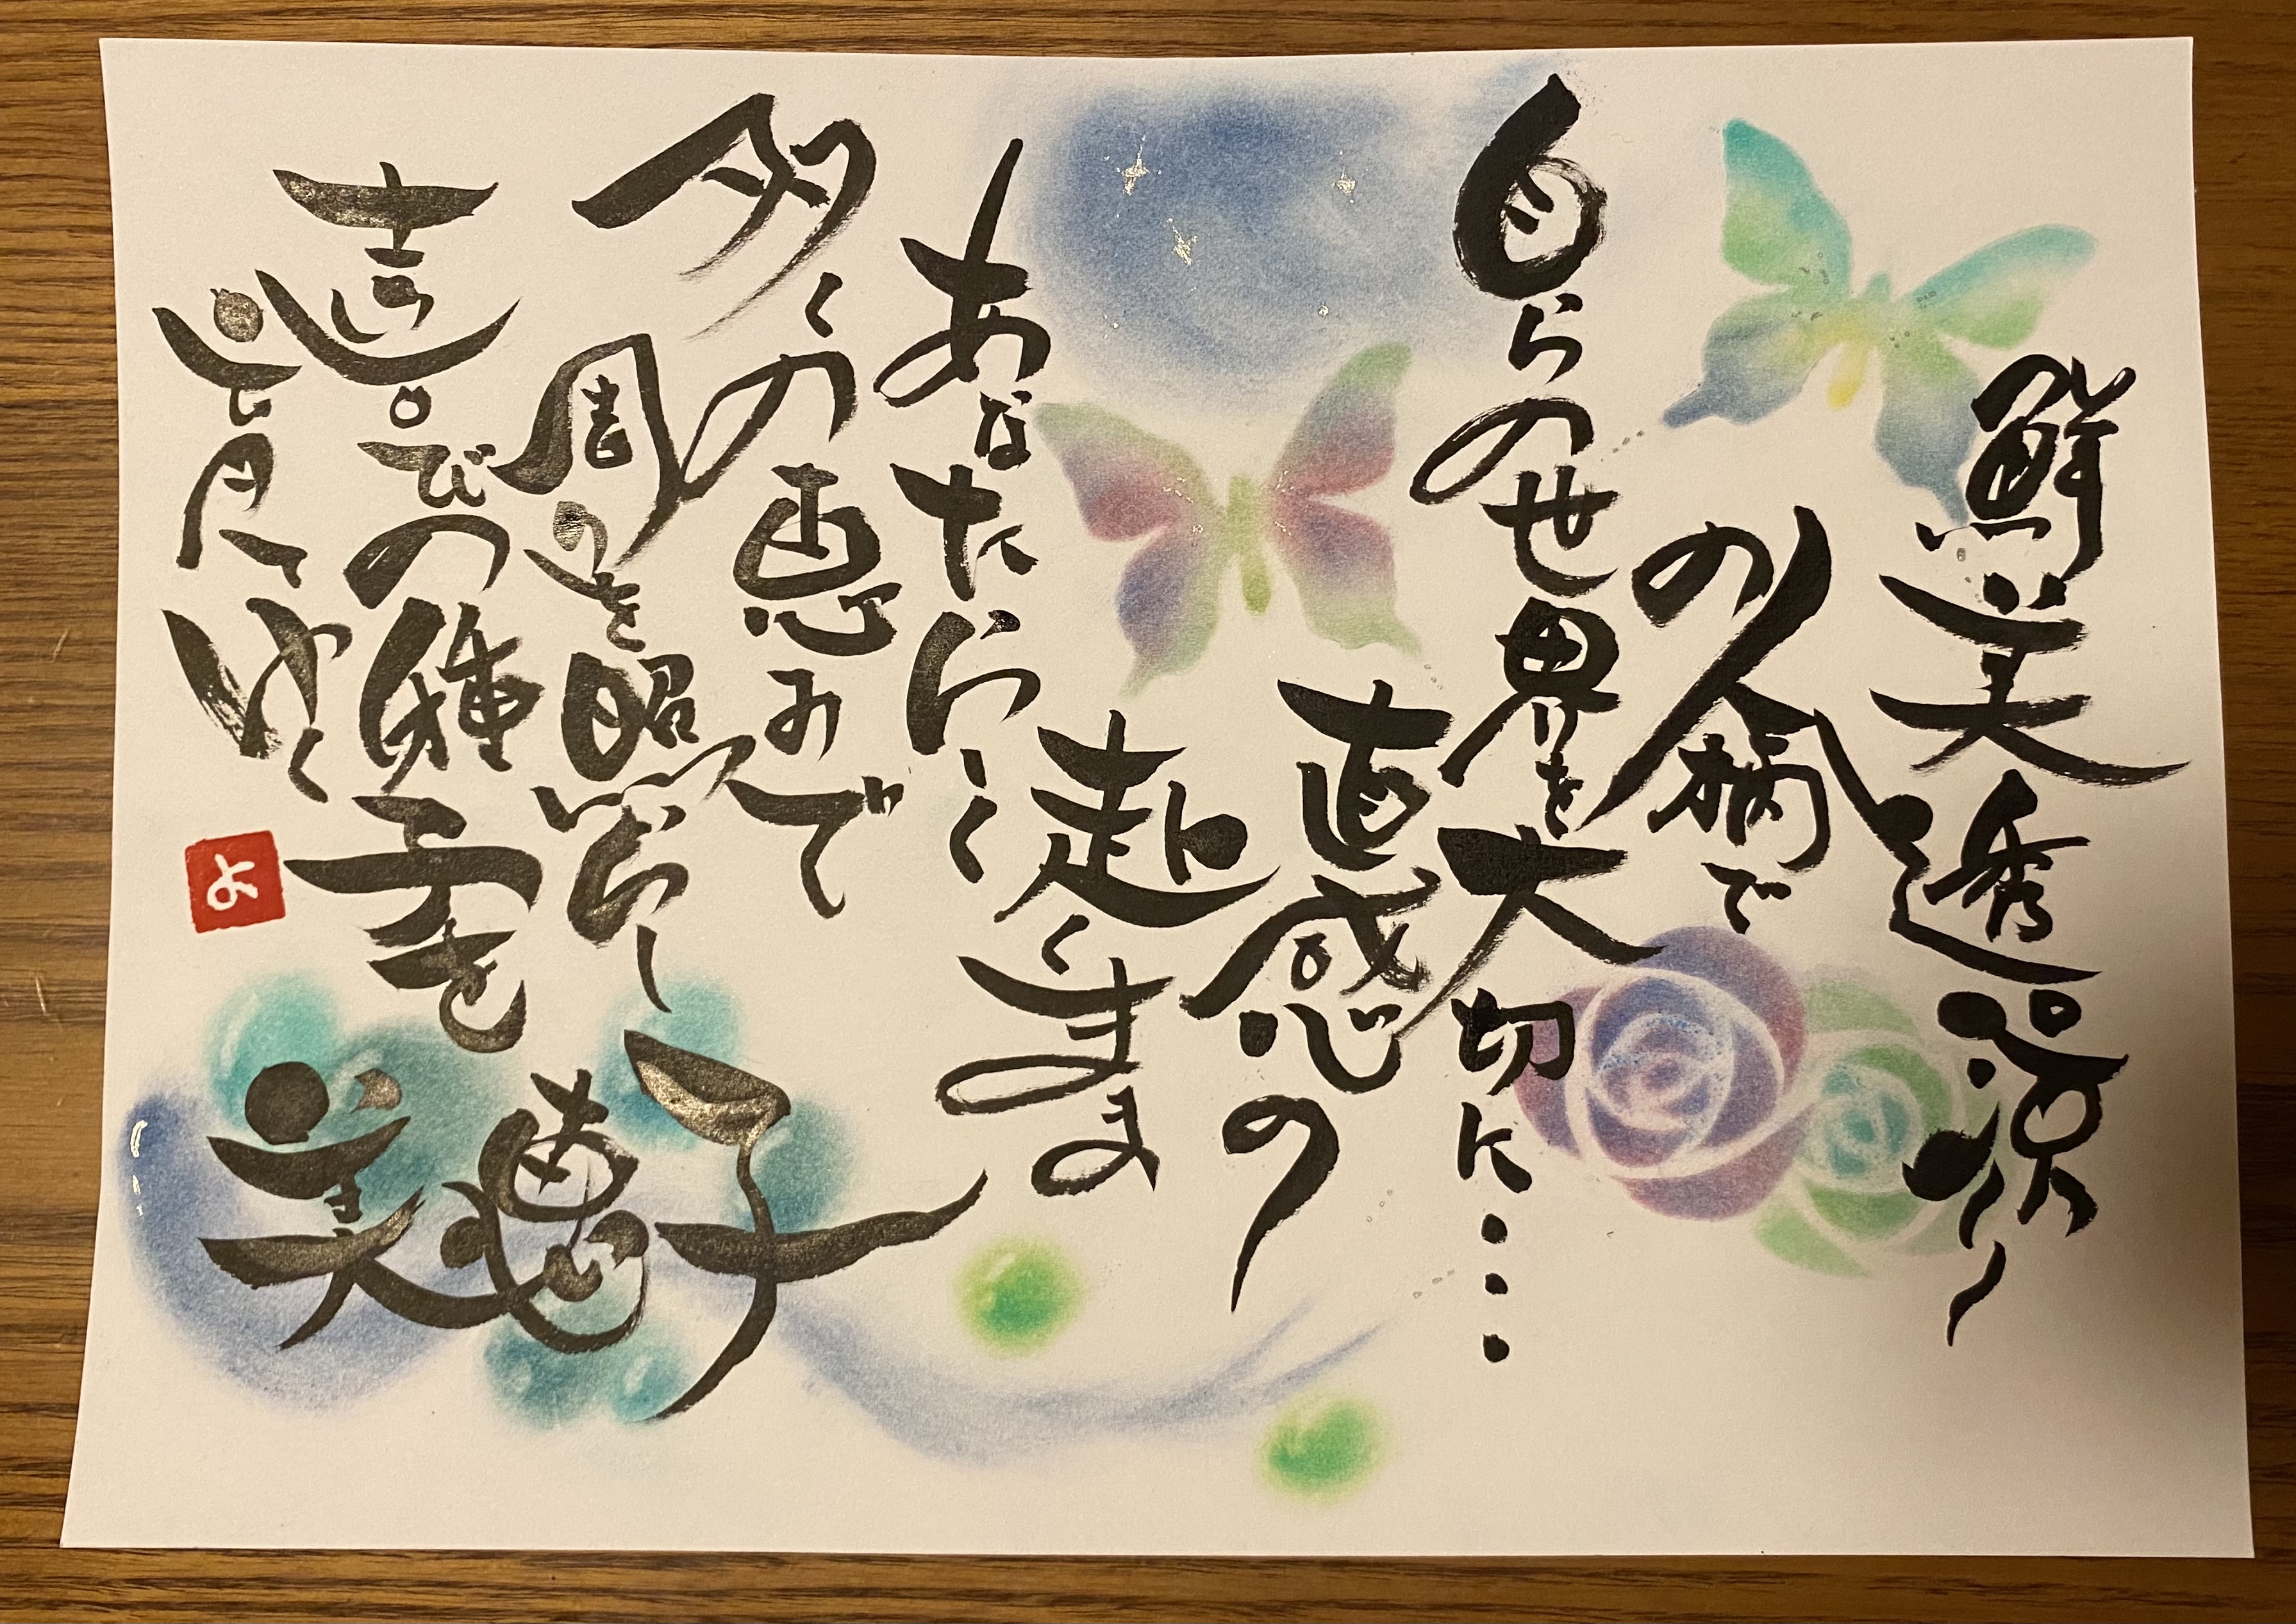 鮮美透涼
の人柄で
自らの世界を大切に・・・
直感の
赴くまま
あなたらしく
多くの恵みで
周りを照らし
喜びの種子を
育てゆく
美恵子
よ